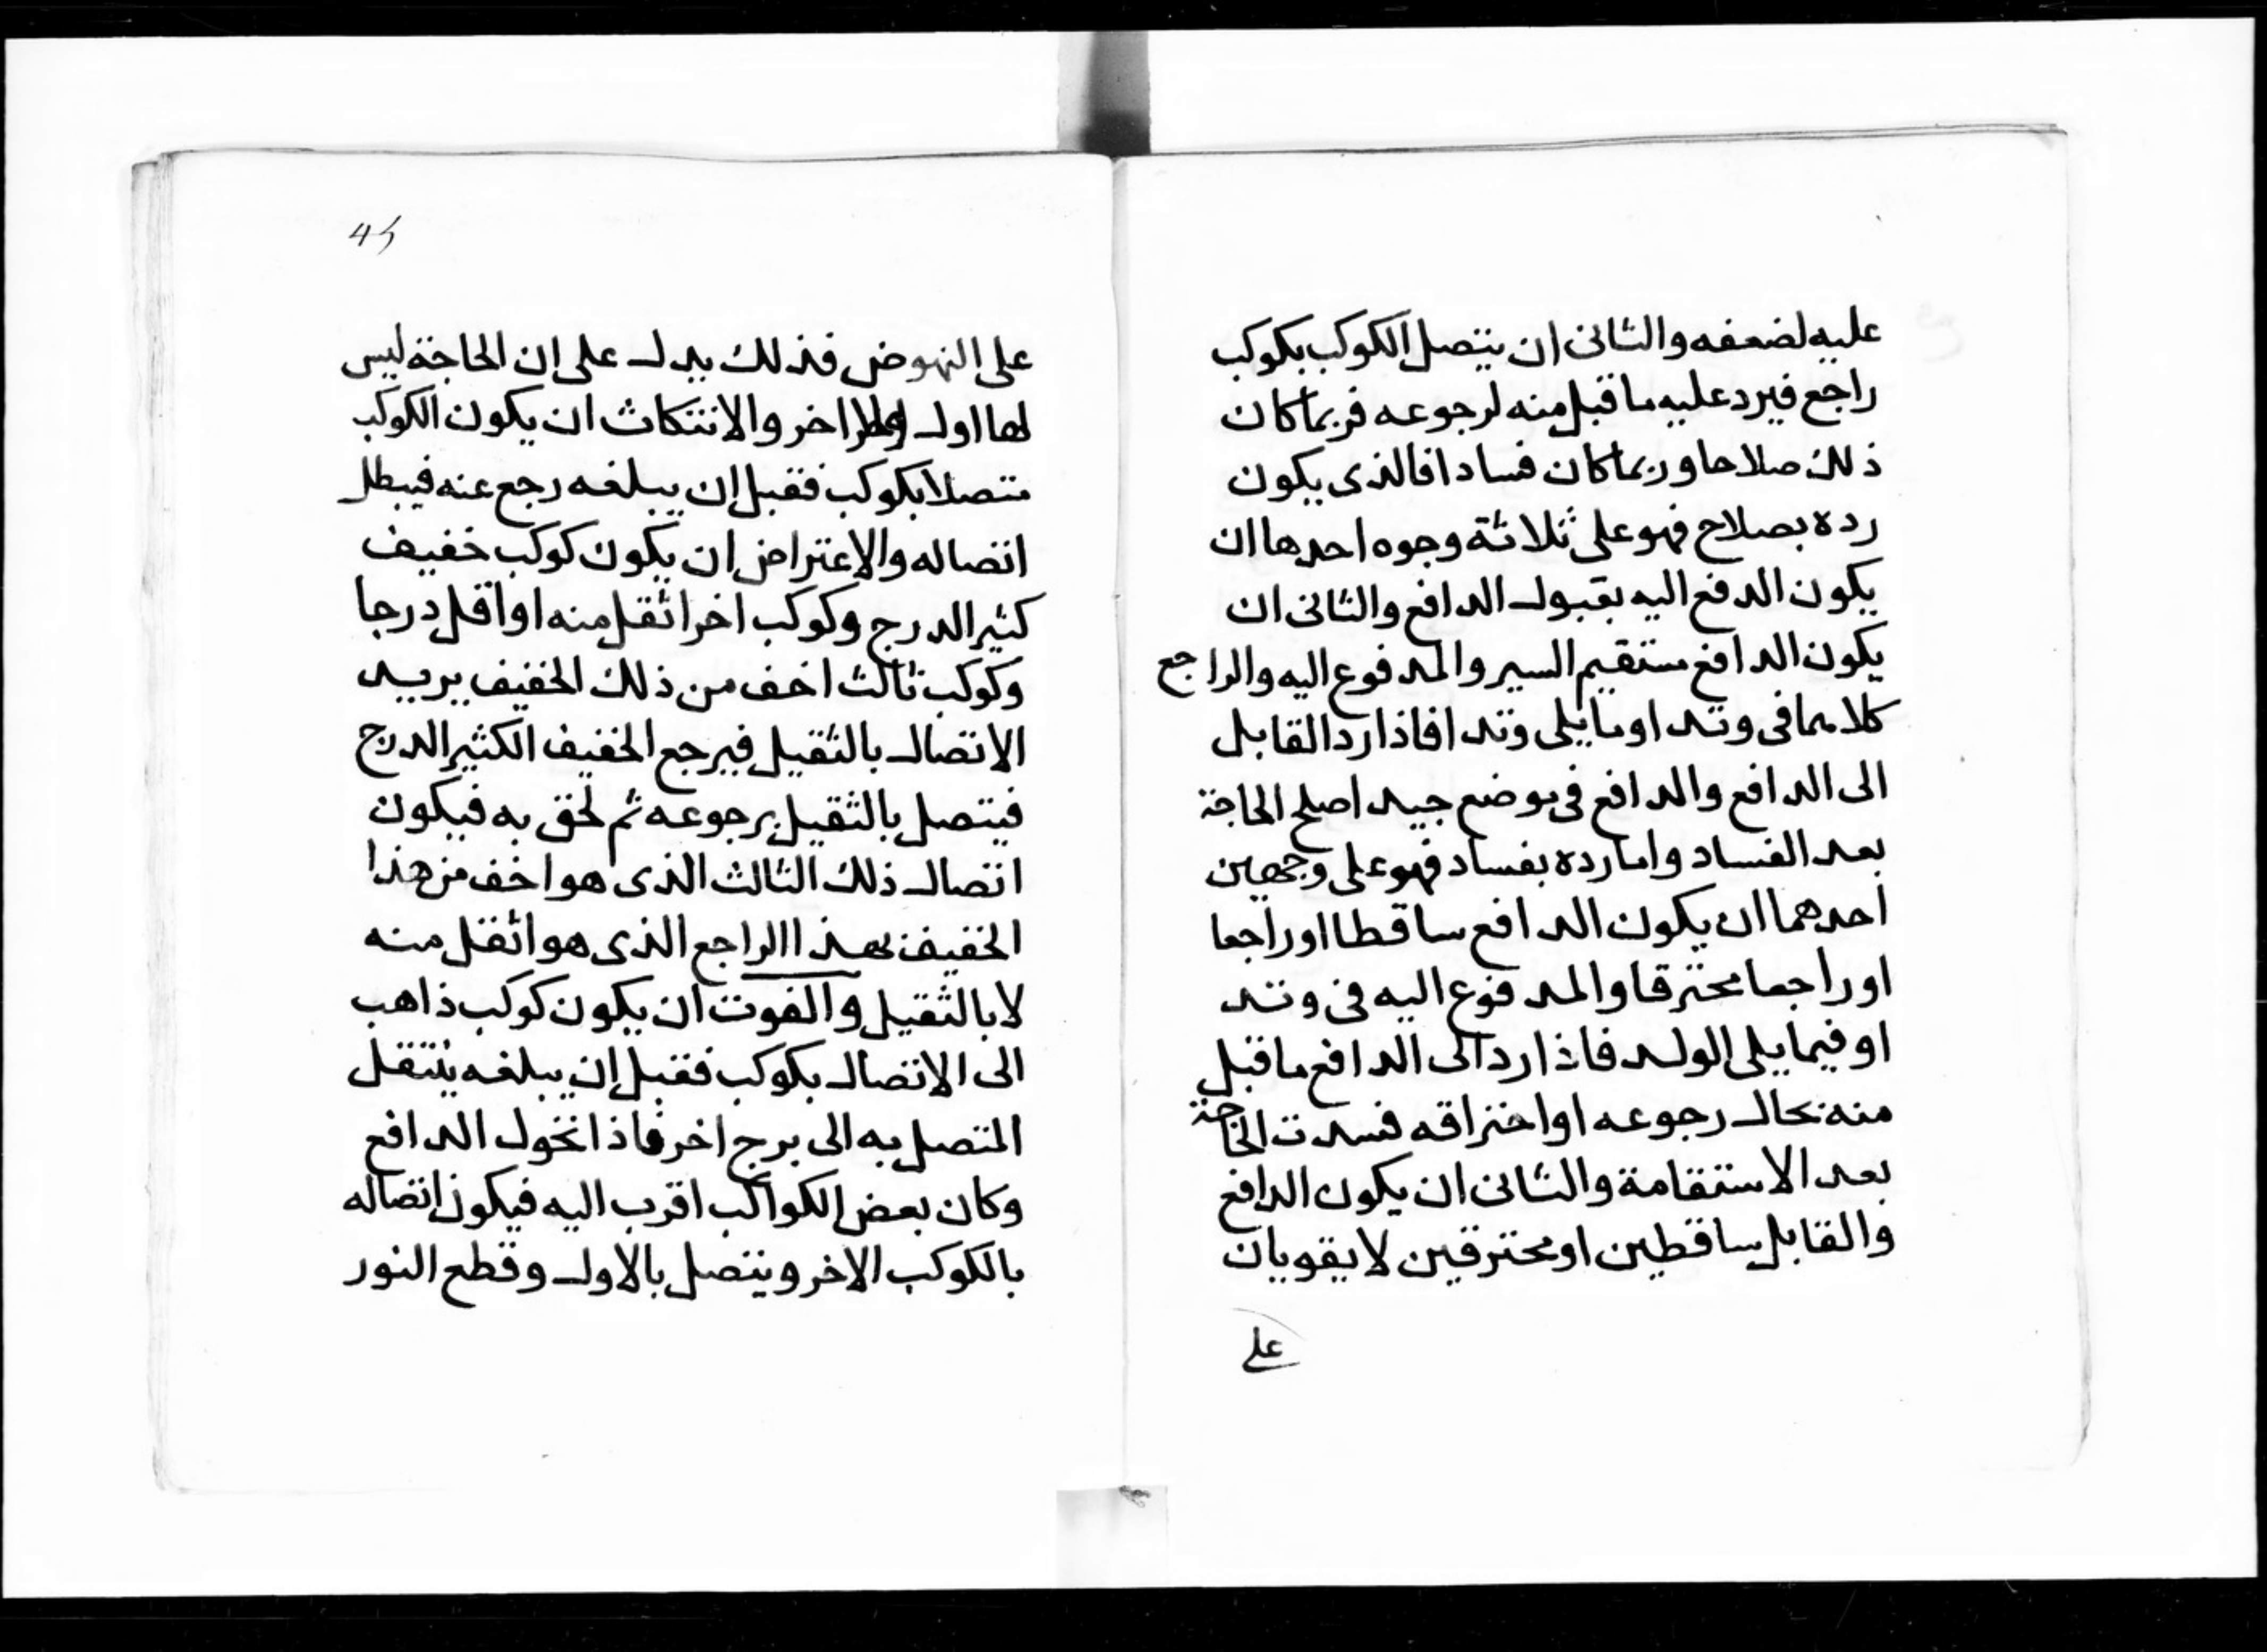 عليه لضعفه والثانى ان يتصل الكوكب بكوكب
راجع فيرد عليه ما قبل منه لرجوعه فربما كان
ذلك صلاحا وربما كان فسادا فالذى يكون
رده بصلاح فهو على ثلاثة وجوه احدها ان
يكون الدفع اليه بقبول الدافع والثانى ان
يكون الدافع مستقيم السير والمدفوع اليه والراجع
كلاهما فى وتد او ما يلى وتدا فاذا رد القابل
الى الدافع والدافع فى موضع جيد اصلح الحاجة
بعد الفساد واما رده بفساد فهو على وجهين
احدهما ان يكون الدافع ساقطا او راجعا
او راجعا محترقا والمدفوع اليه فى وتد
او فيما يلى الولد فاذا رد الى الدافع ما قبل
منه بحال رجوعه او احتراقه فسدت الحاجة
بعد الاستقامة والثانى ان يكون الدافع
والقابل ساقطين او محترقين لا يقويان
على
45
على النهوض فذلك يدل على ان الحاجة ليس
لها اول ولا اخر والانتكاث ان يكون الكوكب
متصلا بكوكب فقبل ان يبلغه رجع عنه فيبطل
اتصاله والاعتراض ان يكون كوكب خفيف
كثير الدرج وكوكب اخر اثقل منه او اقل درجا
وكوكب ثالث اخف من ذلك الخفيف يريد
الاتصال بالثقيل فيرجع الخفيف الكثير الدرج
فيتصل بالثقيل برجوعه ثم لحق به فيكون
اتصال ذلك الثالث الذى هو اخف من هذا
الخفيف بهذا الراجع الذى هو اثقل منه
لا بالثقيل والفوت ان يكون كوكب ذاهب
الى الاتصال بكوكب فقبل ان يبلغه ينتقل
المتصل به الى برج اخر فاذا تحول الدافع
وكان بعض الكواكب اقرب اليه فيكون اتصاله
بالكوكب الاخر ويتصل بالاول وقطع النور